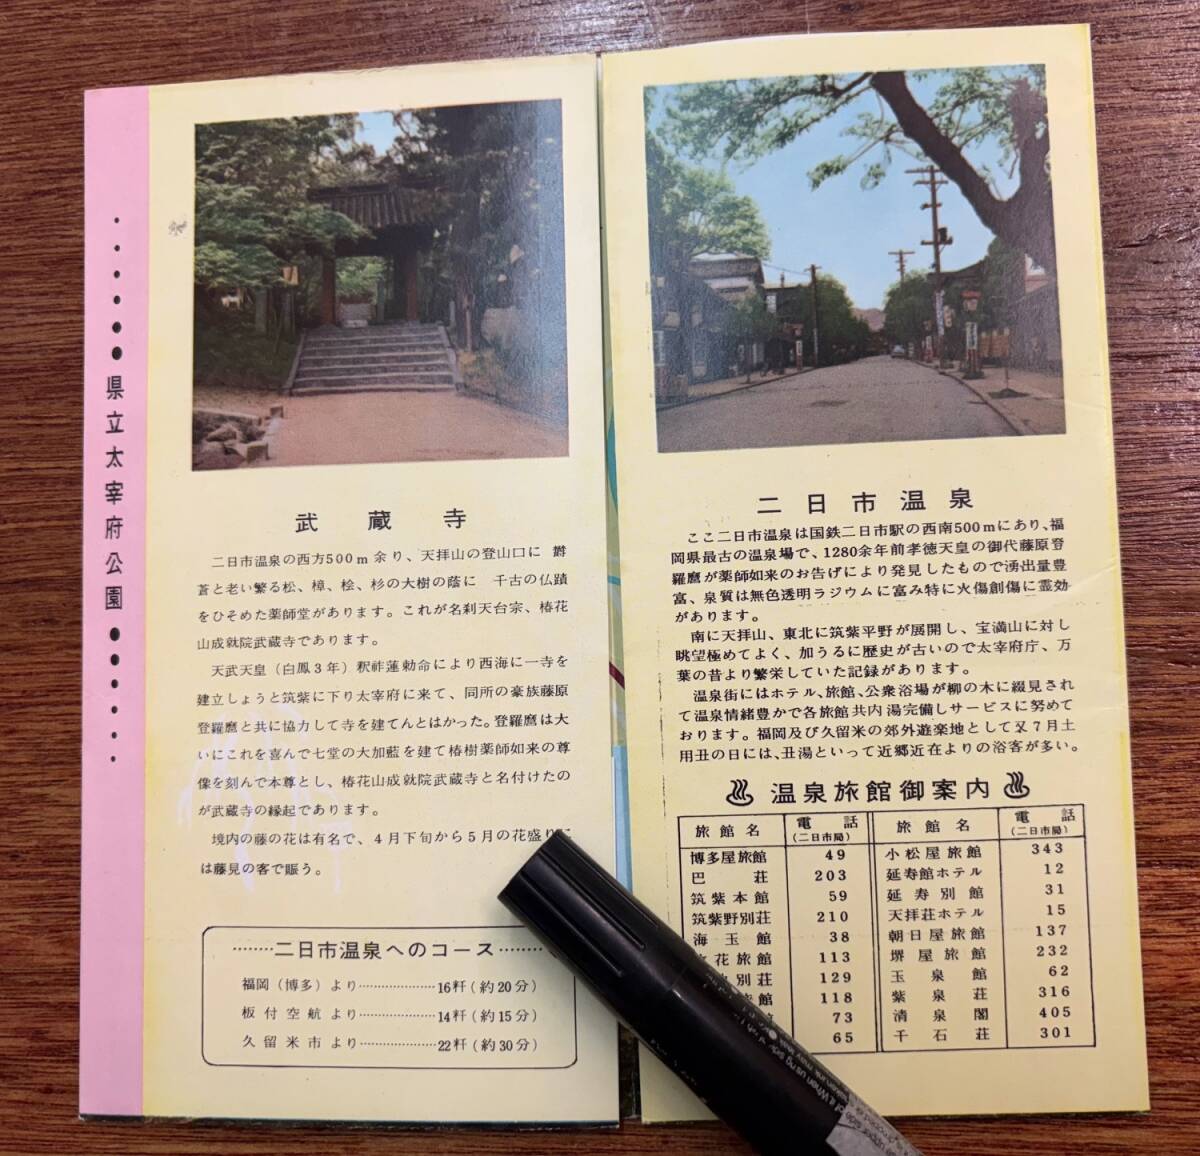 県立太宰府公園
武蔵寺
二日市温泉の西方500m余り、天拝山の登山口に 欝
蒼と老い繁る松、樟、桧、杉の大樹の蔭に 千古の仏蹟
をひそめた薬師堂があります。これが名刹天台宗、椿花
山成就院武蔵寺であります。
天武天皇(白鳳3年)釈祚蓮勅命により西海に一寺を
建立しょうと筑紫に下り太宰府に来て、同所の豪族藤原
登羅麿と共に協力して寺を建てんとはかった。登羅麿は大
いにこれを喜んで七堂の大加藍を建て椿樹薬師如来の尊
像を刻んで本尊とし、椿花山成就院武蔵寺と名付けたの
が武蔵寺の縁起であります。
境内の藤の花は有名で、4月下旬から5月の花盛りに
は藤見の客で賑う。
········二日市温泉へのコース········
福岡(博多)より····················16粁(約20分)
板付空航より····················14粁(約15分)
久留米市より····················22粁(約30分)
二日市温泉
ここ二日市温泉は国鉄二日市駅の西南500mにあり、福
岡県最古の温泉場で、1280余年前孝徳天皇の御代藤原登
羅麿が薬師如来のお告げにより発見したもので湧出量豊
富、泉質は無色透明ラジウムに富み特に火傷創傷に霊効
があります。
南に天拝山、東北に筑紫平野が展開し、宝満山に対し
眺望極めてよく、加うるに歴史が古いので太宰府庁、万
葉の昔より繁栄していた記録があります。
温泉街にはホテル、旅館、公衆浴場が柳の木に綴見され
て温泉情緒豊かで各旅館共内湯完備しサービスに努めて
おります。福岡及び久留米の郊外遊楽地として又7月土
用丑の日には、丑湯といって近郷近在よりの浴客が多い。
♨ 温泉旅館御案内 ♨
旅館名 電話(二日市局) 旅館名 電話(二日市局)
博多屋旅館 49 小松屋旅館 343
巴荘 203 延寿館ホテル 12
筑紫本館 59 延寿別館 31
筑紫野別荘 210 天拝荘ホテル 15
海玉館 38 朝日屋旅館 137
花旅館 113 堺屋旅館 232
別荘 129 玉泉館 62
館 118 紫泉荘 316
73 清泉閣 405
65 千石荘 301